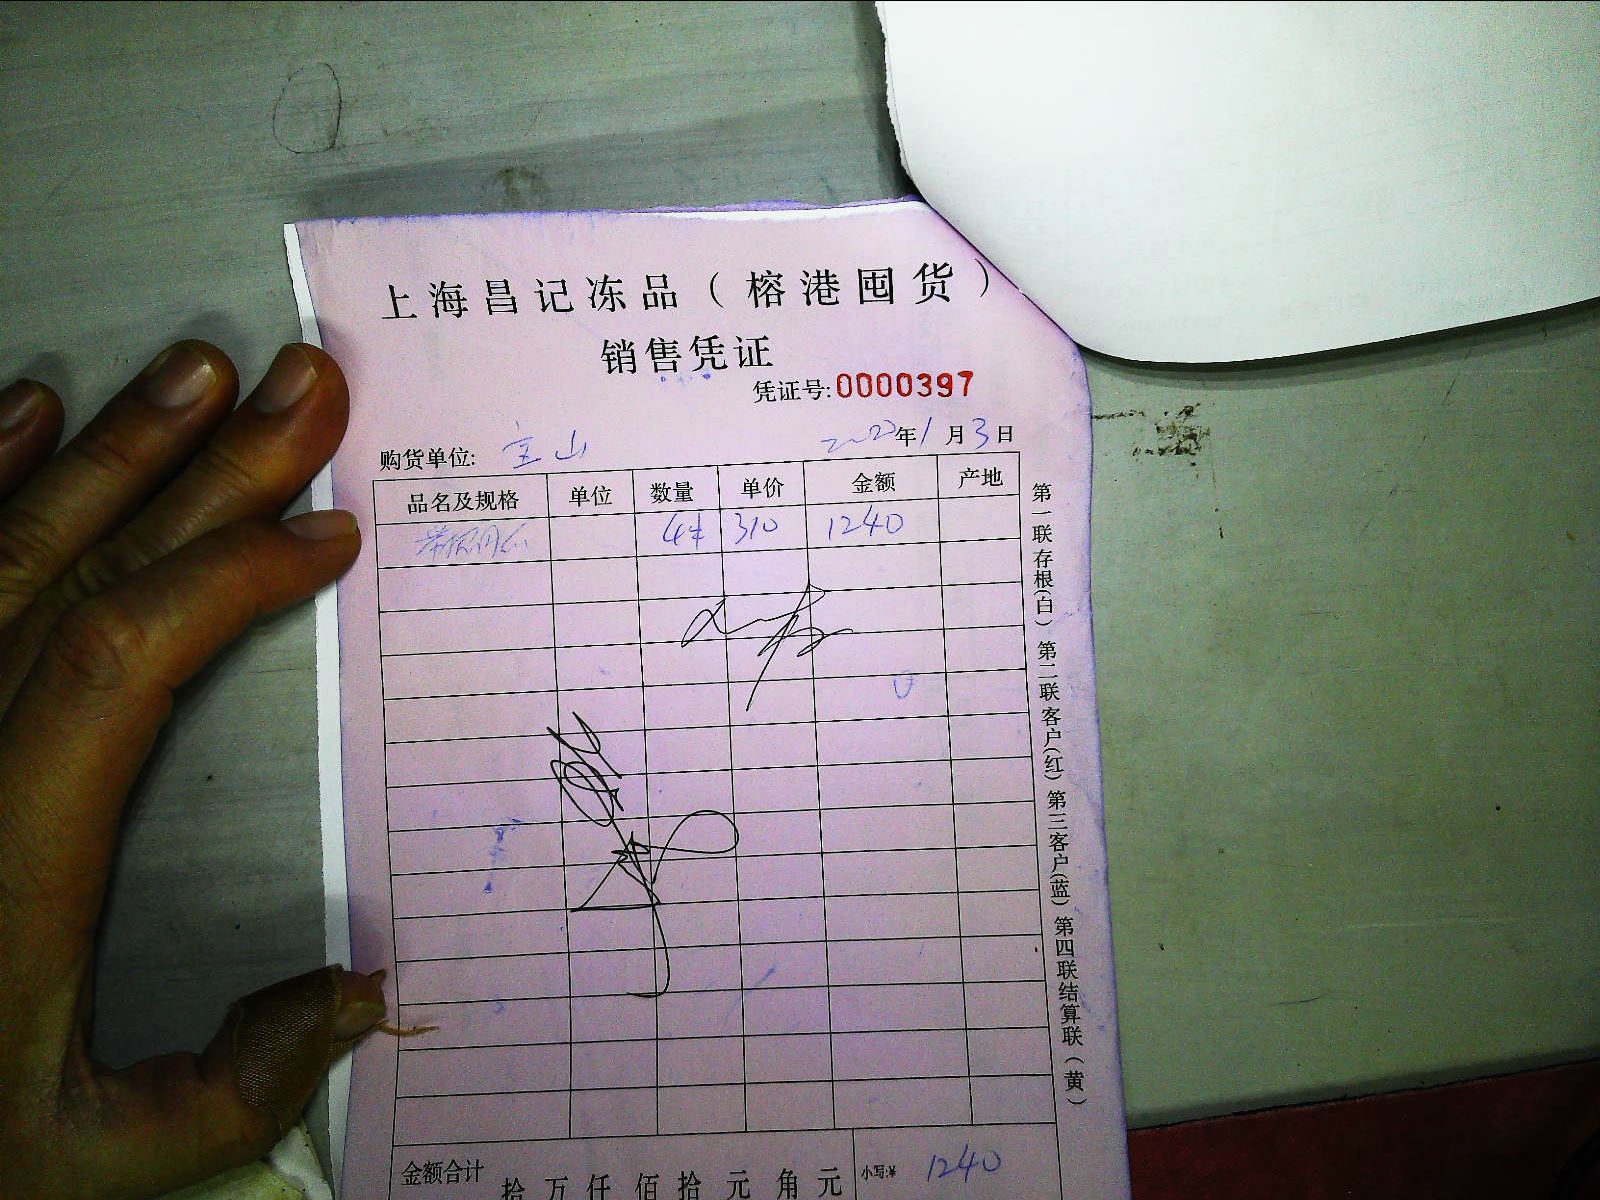 上海昌记冻品（榕港囤货）
销售凭证
凭证号:0000397
购货单位: 宝山 2022年1月3日
品名及规格 单位 数量 单价 金额 产地
4件 310 1240
金额合计 拾 万 仟 佰 拾 元 角 元 小写:¥ 1240
第一联存根(白) 第二联客户(红) 第三客户(蓝) 第四联结算联(黄)